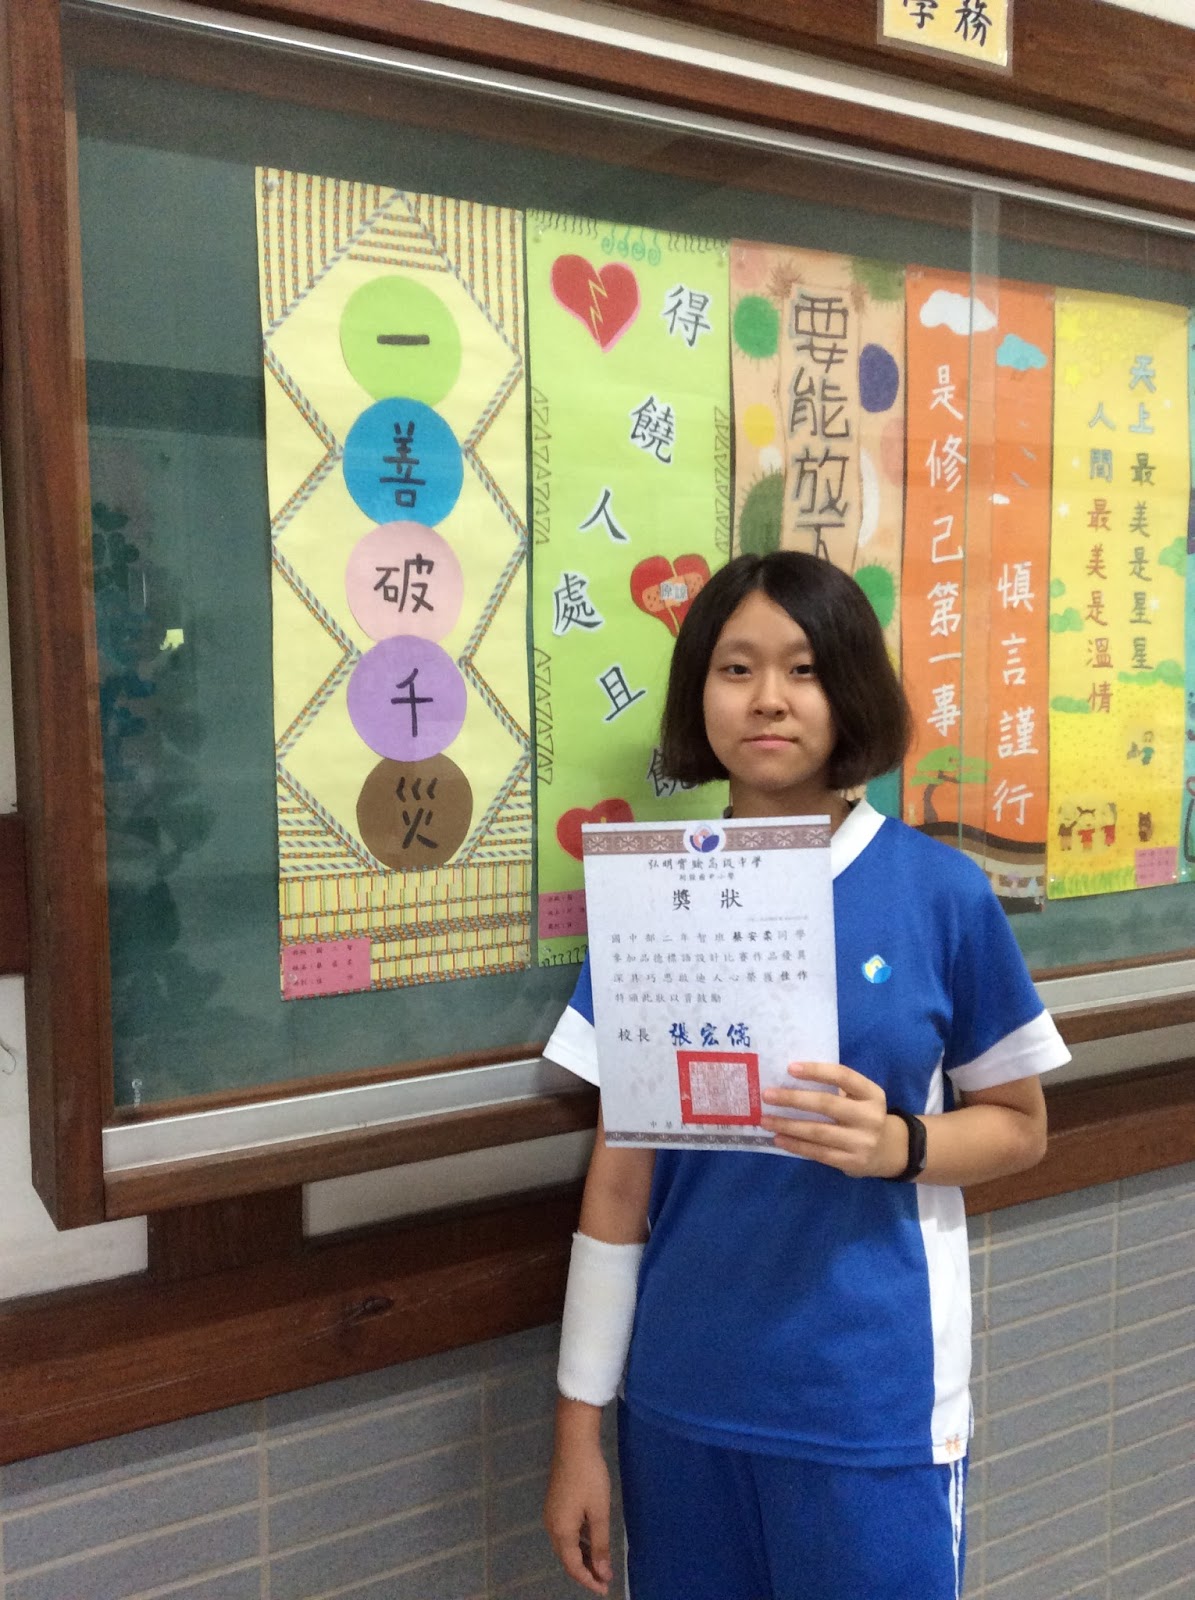 學務
一善破千災
得饒人處且饒
原諒
要能放下
慎言謹行
是修己第一事
天上最美是星星
人間最美是溫情
弘明實驗高級中學
附設國中小學
獎狀
國中部二年智班蔡安柔同學
參加品德標語設計比賽作品優異
深具巧思啟迪人心榮獲佳作
特頒此狀以資鼓勵
校長 張宏儒
中華民國